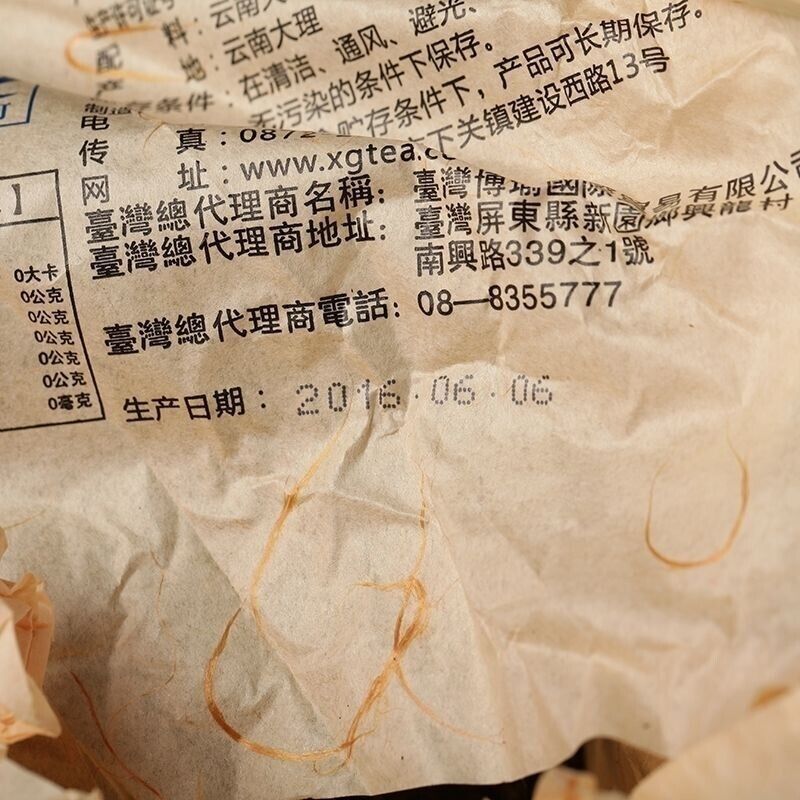 生产许可证号
配 料：云南大
产 地：云南大理
贮存条件：在清洁、通风、避光、
无污染的条件下保存。
贮存条件下，产品可长期保存。
制造
下关镇建设西路13号
电
传 真：0872-
网 址：www.xgtea.c
臺灣總代理商名稱：臺灣博瑜國際貿易有限公司
臺灣總代理商地址：臺灣屏東縣新園鄉興龍村
南興路339之1號
臺灣總代理商電話：08—8355777
生产日期：2016.06.06
】
0大卡
0公克
0公克
0公克
0公克
0公克
0毫克